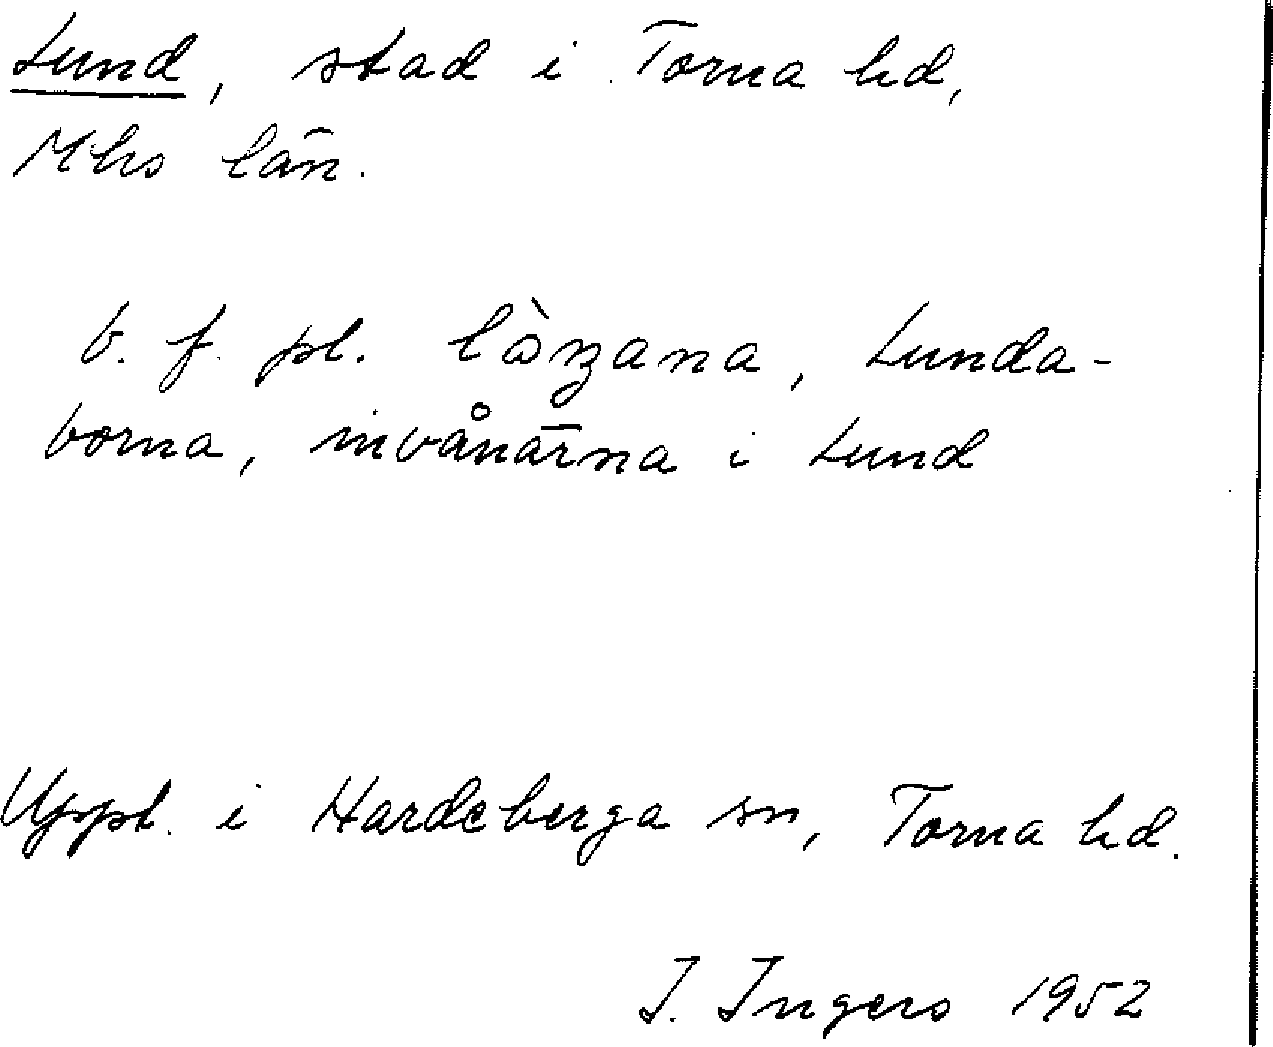 Lund, stad i Torna hd,
Mhs län.
b. f. pl. Lunda-
borna, invånarna i Lund
Uppt. i Hardeberga sn, Torna hd.
I. Ingers 1952